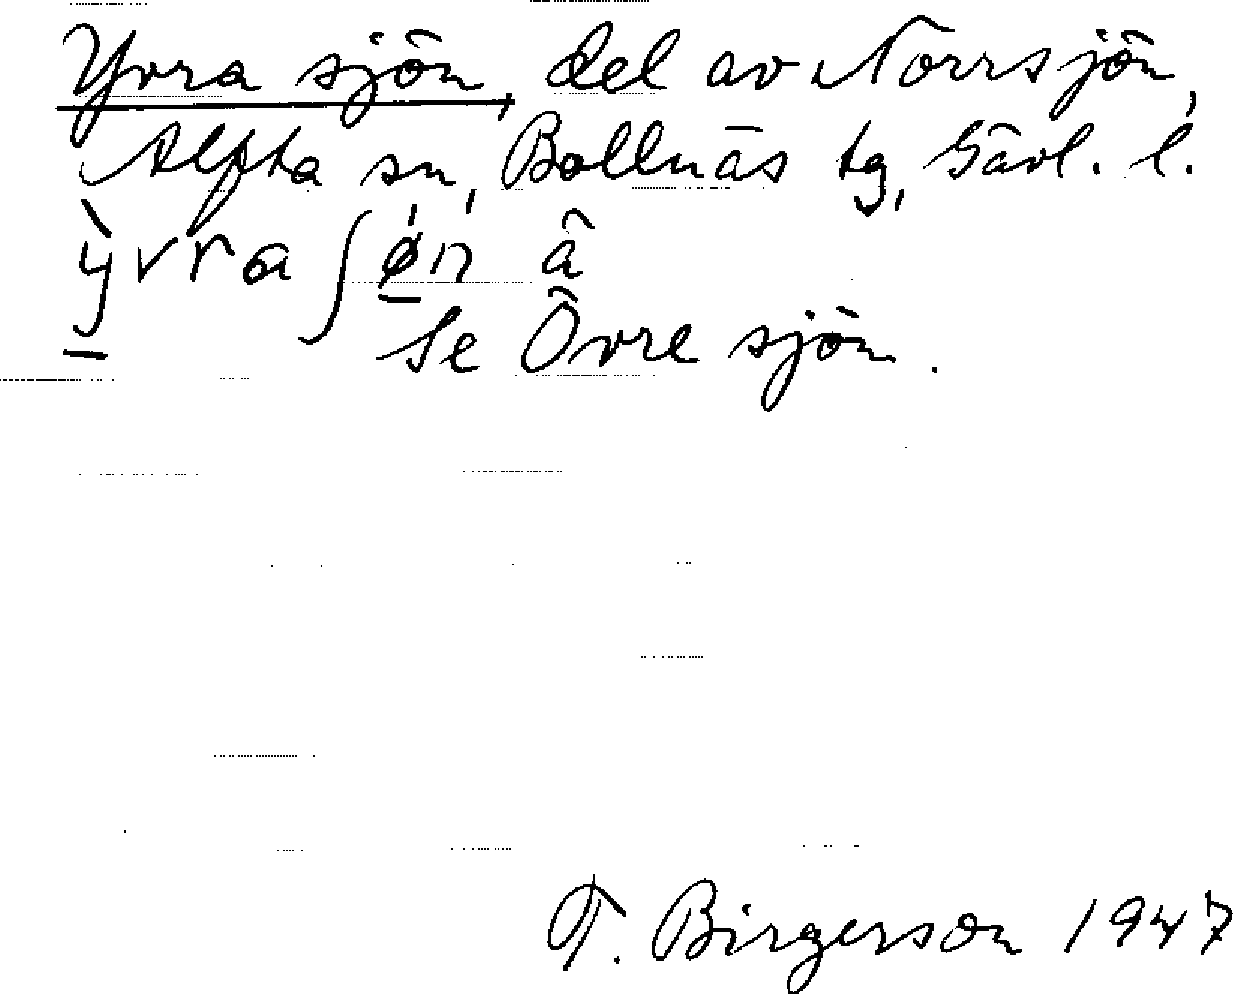 Yvra sjön, del av Norrsjön,
Alfta sn, Bollnäs tg, Gävl. l.
ỳvra ʃǿ̱n â
Se Övre sjön.
T. Birgerson 1947